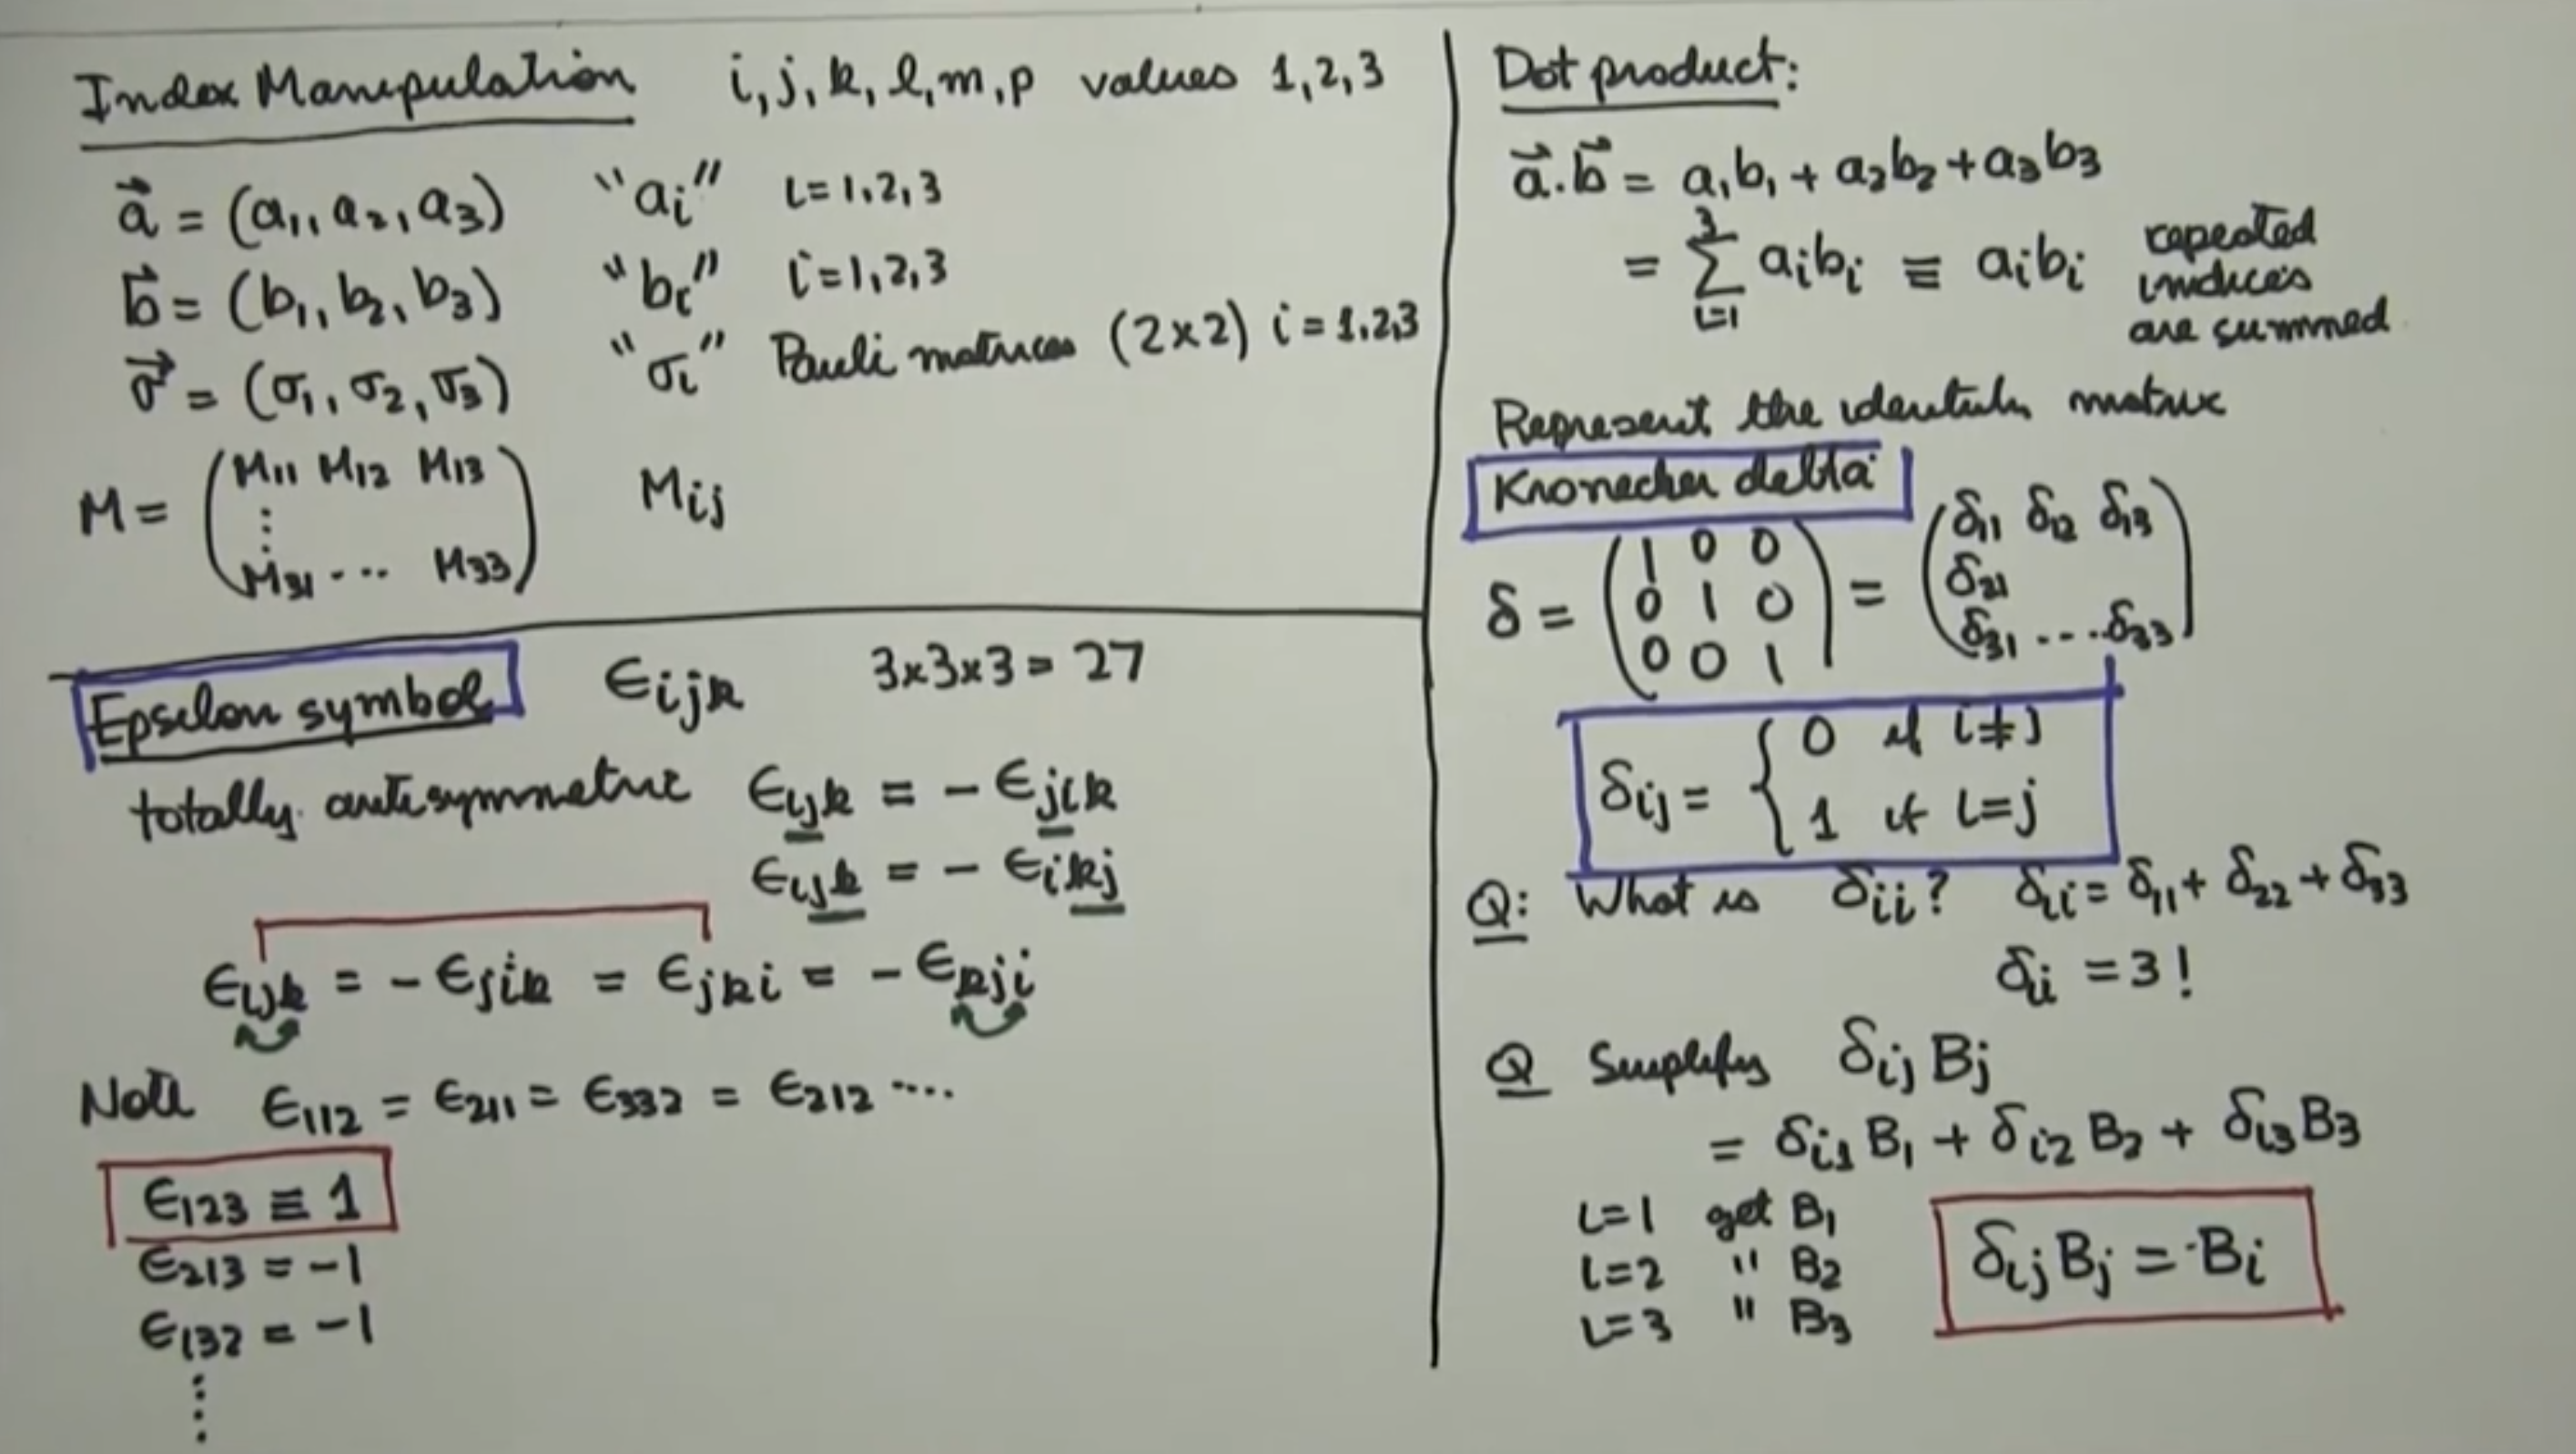 Index Manipulation i, j, k, l, m, p values 1, 2, 3
a⃗ = (a₁, a₂, a₃) "aᵢ" i = 1, 2, 3
b⃗ = (b₁, b₂, b₃) "bᵢ" i = 1, 2, 3
σ⃗ = (σ₁, σ₂, σ₃) "σᵢ" Pauli matrices (2×2) i = 1, 2, 3
M = ( M₁₁ M₁₂ M₁₃
⋮
M₃₁ ... M₃₃ ) Mᵢⱼ
Epsilon symbol ϵᵢⱼₖ 3×3×3 = 27
totally antisymmetric ϵᵢⱼₖ = − ϵⱼᵢₖ
ϵᵢⱼₖ = − ϵᵢₖⱼ
ϵᵢⱼₖ = − ϵⱼᵢₖ = ϵⱼₖᵢ = − ϵₖⱼᵢ
Note ϵ₁₁₂ = ϵ₂₁₁ = ϵ₃₃₂ = ϵ₂₁₂ ....
ϵ₁₂₃ ≡ 1
ϵ₂₁₃ = −1
ϵ₁₃₂ = −1
⋮
Dot product:
a⃗.b⃗ = a₁b₁ + a₂b₂ + a₃b₃
= ∑ᵢ₌₁³ aᵢbᵢ ≡ aᵢbᵢ repeated
indices
are summed
Represent the identity matrix
Kronecker delta
δ = ( 1 0 0
0 1 0
0 0 1 ) = ( δ₁₁ δ₁₂ δ₁₃
δ₂₁
δ₃₁ .... δ₃₃ )
δᵢⱼ = { 0 if i ≠ j
1 if i = j
Q: What is δᵢᵢ? δᵢᵢ = δ₁₁ + δ₂₂ + δ₃₃
δᵢᵢ = 3!
Q Simplify δᵢⱼ Bⱼ
= δᵢ₁ B₁ + δᵢ₂ B₂ + δᵢ₃ B₃
i=1 get B₁
i=2 " B₂
i=3 " B₃
δᵢⱼ Bⱼ = Bᵢ